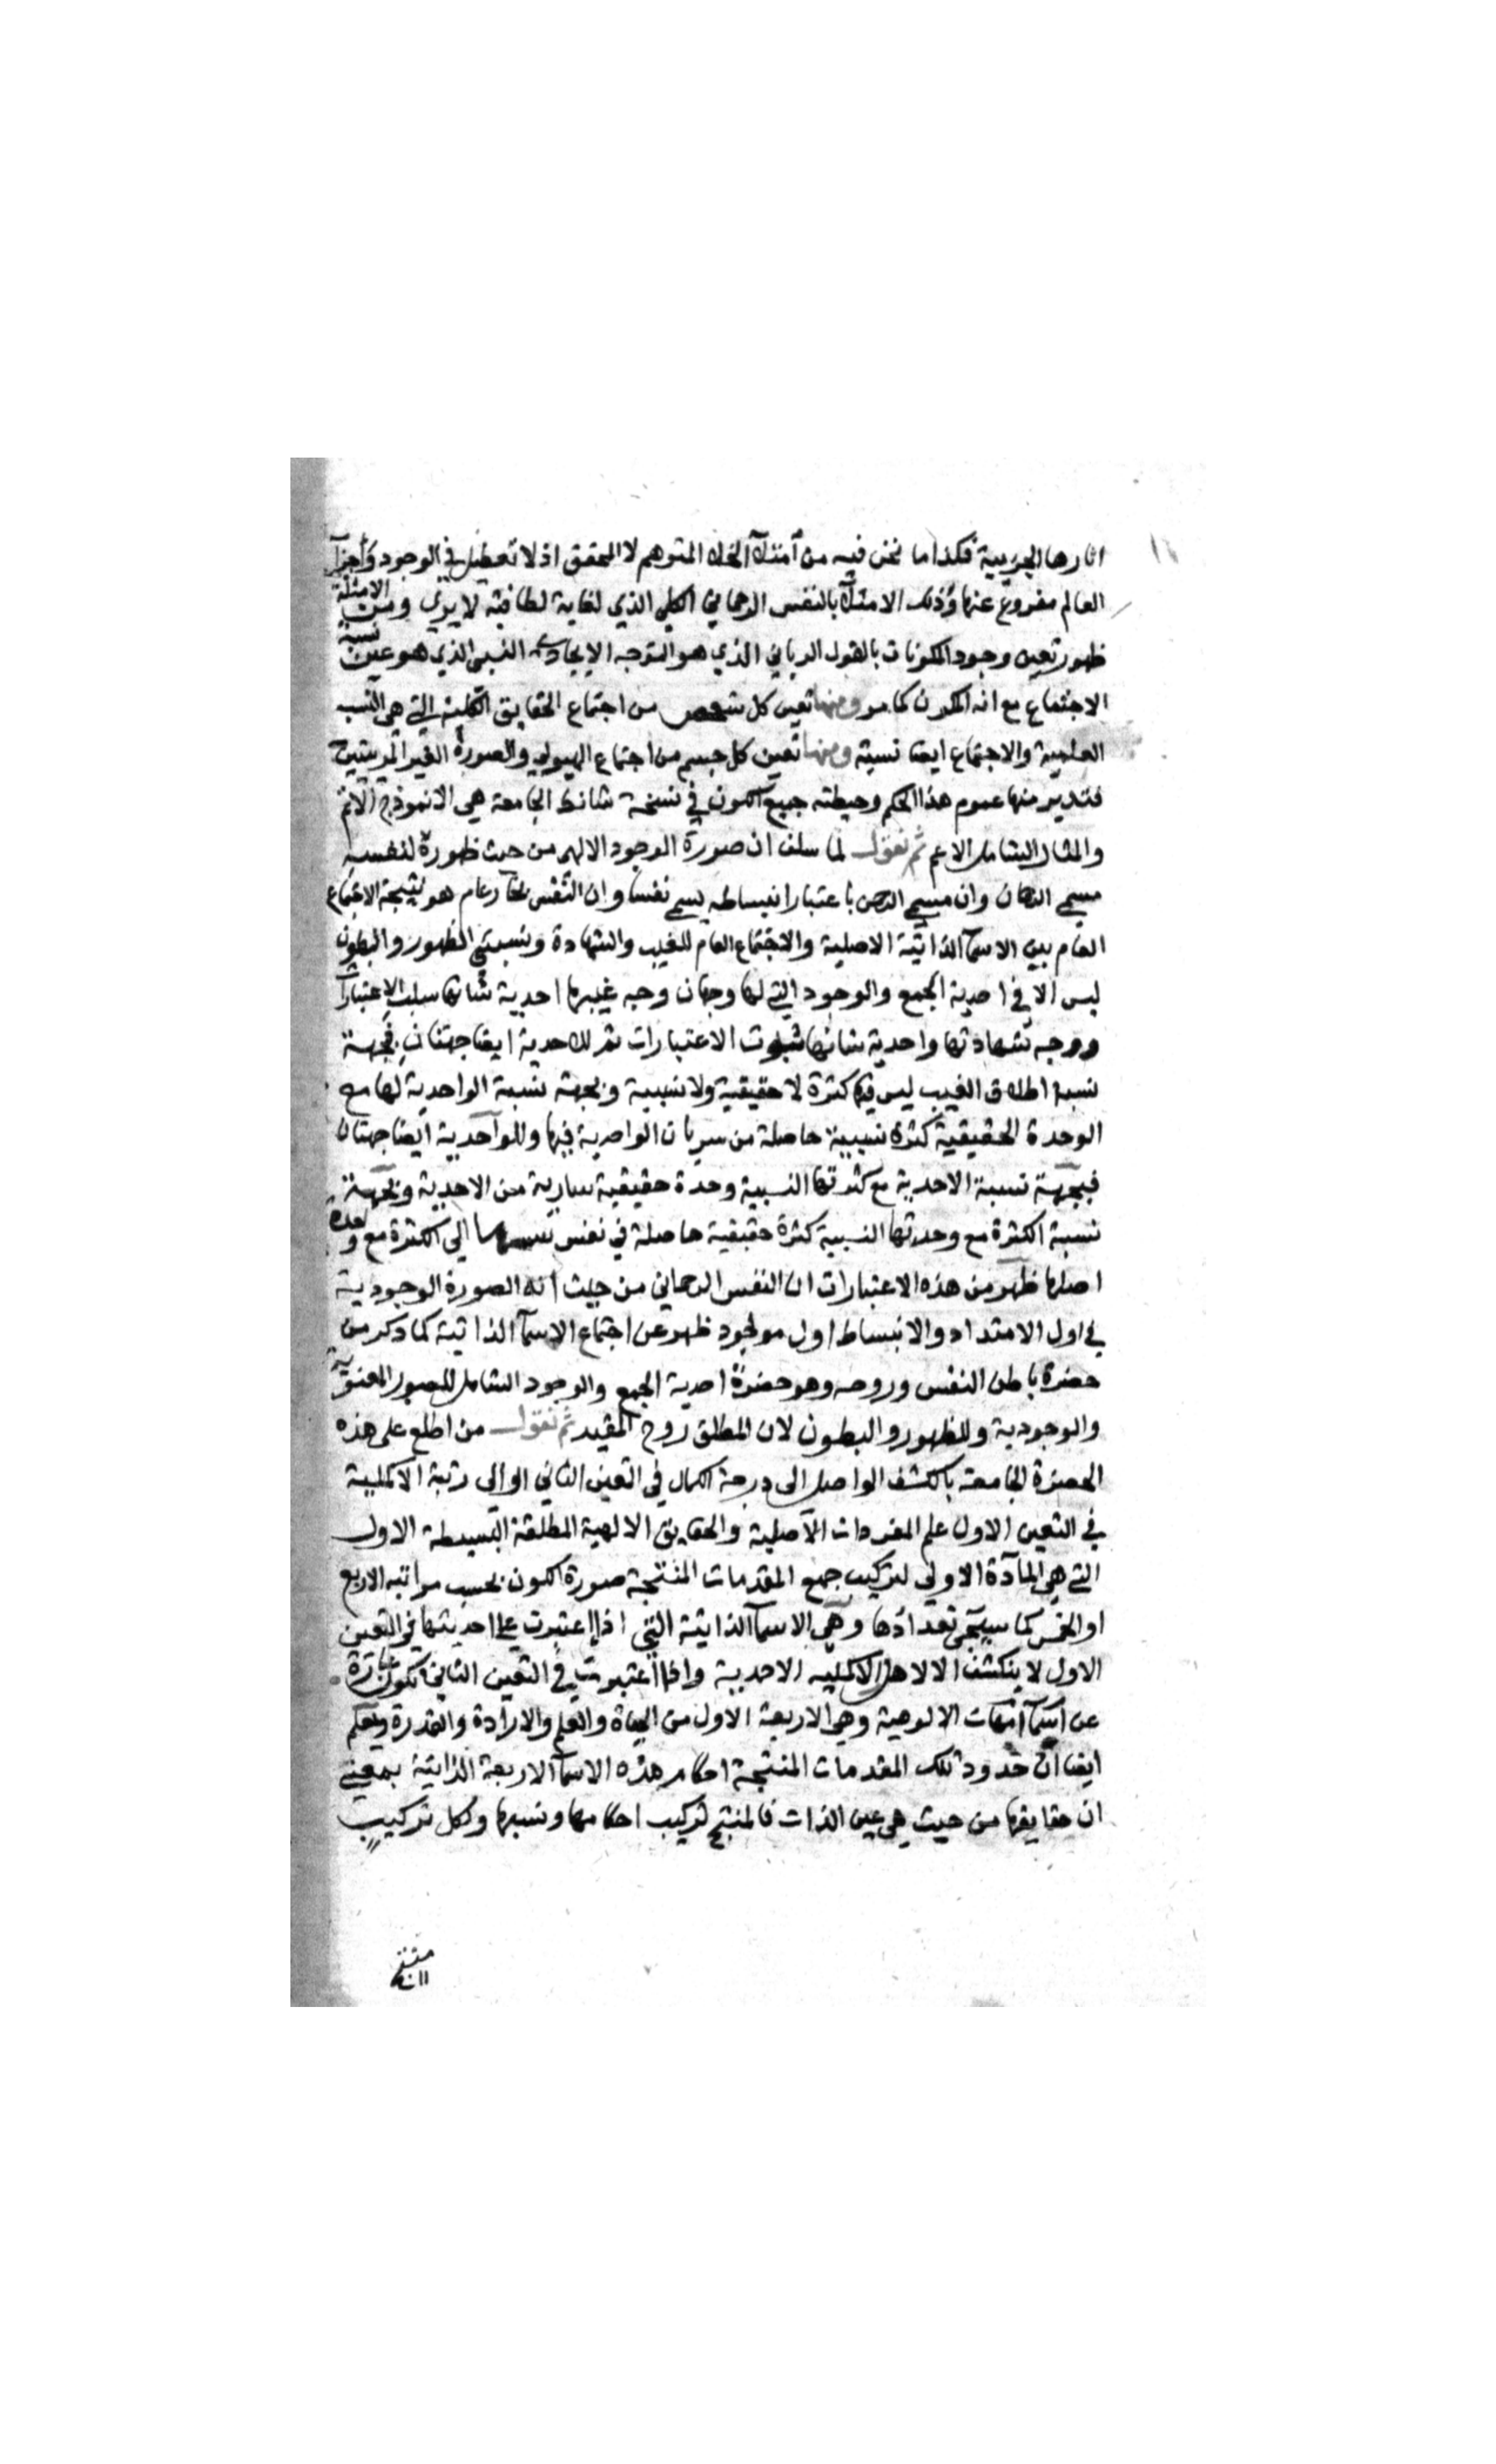 اثارها الجزيية فكذا ما نحن فيه من امتلآ الخلا المتوهم لا المحقق اذ لا تعطيل في الوجود واجزآ
العالم مفروغ عنها وذلك الامتلآ بالنفس الرحماني الكلي الذي لغاية لطافته لا يري ومن الامثلة
ظهور تعين وجود المكونات بالقول الرباني الذي هو التوجه الايجادي النسبي الذي هو عين نسبة
الاجتماع مع انه المكون كما مر ومنها تعين كل شخص من اجتماع الحقايق الكلية التي هي النسب
العلمية والاجتماع ايضا نسبة ومنها تعين كل جسم من اجتماع الهيولي والصورة الغير المريتين
فتدبر منها عموم هذا الحكم وحيطته جميع الكون في نسخة شانك الجامعة هي الانموذج الاتم
والمثال الشامل الاعم ثم نقول لما سلف ان صورة الوجود الالهي من حيث ظهوره لنفسه
مسمي الرحمان وان مسمي الرحمن باعتبار انبساطه يسمي نفسا وان النفس بخار عام هو نتيجة الاجتماع
العام بين الاسمآ الذاتية الاصلية والاجتماع العام للغيب والشهادة ونسبتي الظهور والبطون
ليس الا في احدية الجمع والوجود التي لها وجهان وجه غيبها احدية شانها سلب الاعتبارات
ووجه شهادتها واحدية شانها ثبوت الاعتبارات ثم للاحدية ايضا جهتان فجهة
نسبة اطلاق الغيب ليس فيها كثرة لا حقيقية ولا نسبية وبجهة نسبة الواحدية لها مع
الوحدة الحقيقية كثرة نسبية حاصلة من سريان الواحدية فيها وللواحدية ايضا جهتان
فبجهة نسبة الاحدية مع كثرتها النسبية وحدة حقيقية سارية من الاحدية وبجهة
نسبة الكثرة مع وحدتها النسبية كثرة حقيقية حاصلة في نفس نسبتها الي الكثرة مع وحدة
اصلها ظهر من هذه الاعتبارات ان النفس الرحماني من حيث انه الصورة الوجودية
في اول الامتداد والانبساط اول مولود ظهر عن اجتماع الاسمآ الذاتية كما ذكر من
حضرة باطن النفس وروحه وهو حضرة احدية الجمع والوجود الشامل للصور المعنوية
والوجودية وللظهور والبطون لان المطلق روح المقيد ثم نقول من اطلع علي هذه
الحضرة الجامعة بالكشف الواصل الى درجة الكمال في التعين الثاني او الى رتبة الاكملية
في التعين الاول علم المفردات الاصلية والحقايق الالهية المطلقة البسيطة الاول
التي هي المآدة الاولي لتركيب جميع المقدمات المنتجة صورة الكون بحسب مراتبه الاربع
او الخمس كما سيجي تعدادها وهي الاسمآ الذاتية التي اذا اعتبرت علي احديتها في التعين
الاول لا ينكشف الا لاهل الاكملية الاحدية واذا اعتبرت في التعين الثاني تكون عبارة
عن اسمآ امهات الالوهية وهي الاربعة الاول من الحياة والعلم والارادة والقدرة ويعلم
ايضا ان حدود تلك المقدمات المنتجة احكام هذه الاسمآ الاربعة الذاتية بمعني
ان حقايقها من حيث هي عين الذات فالمنتج تركيب احكامها ونسبها ولكل تركيب